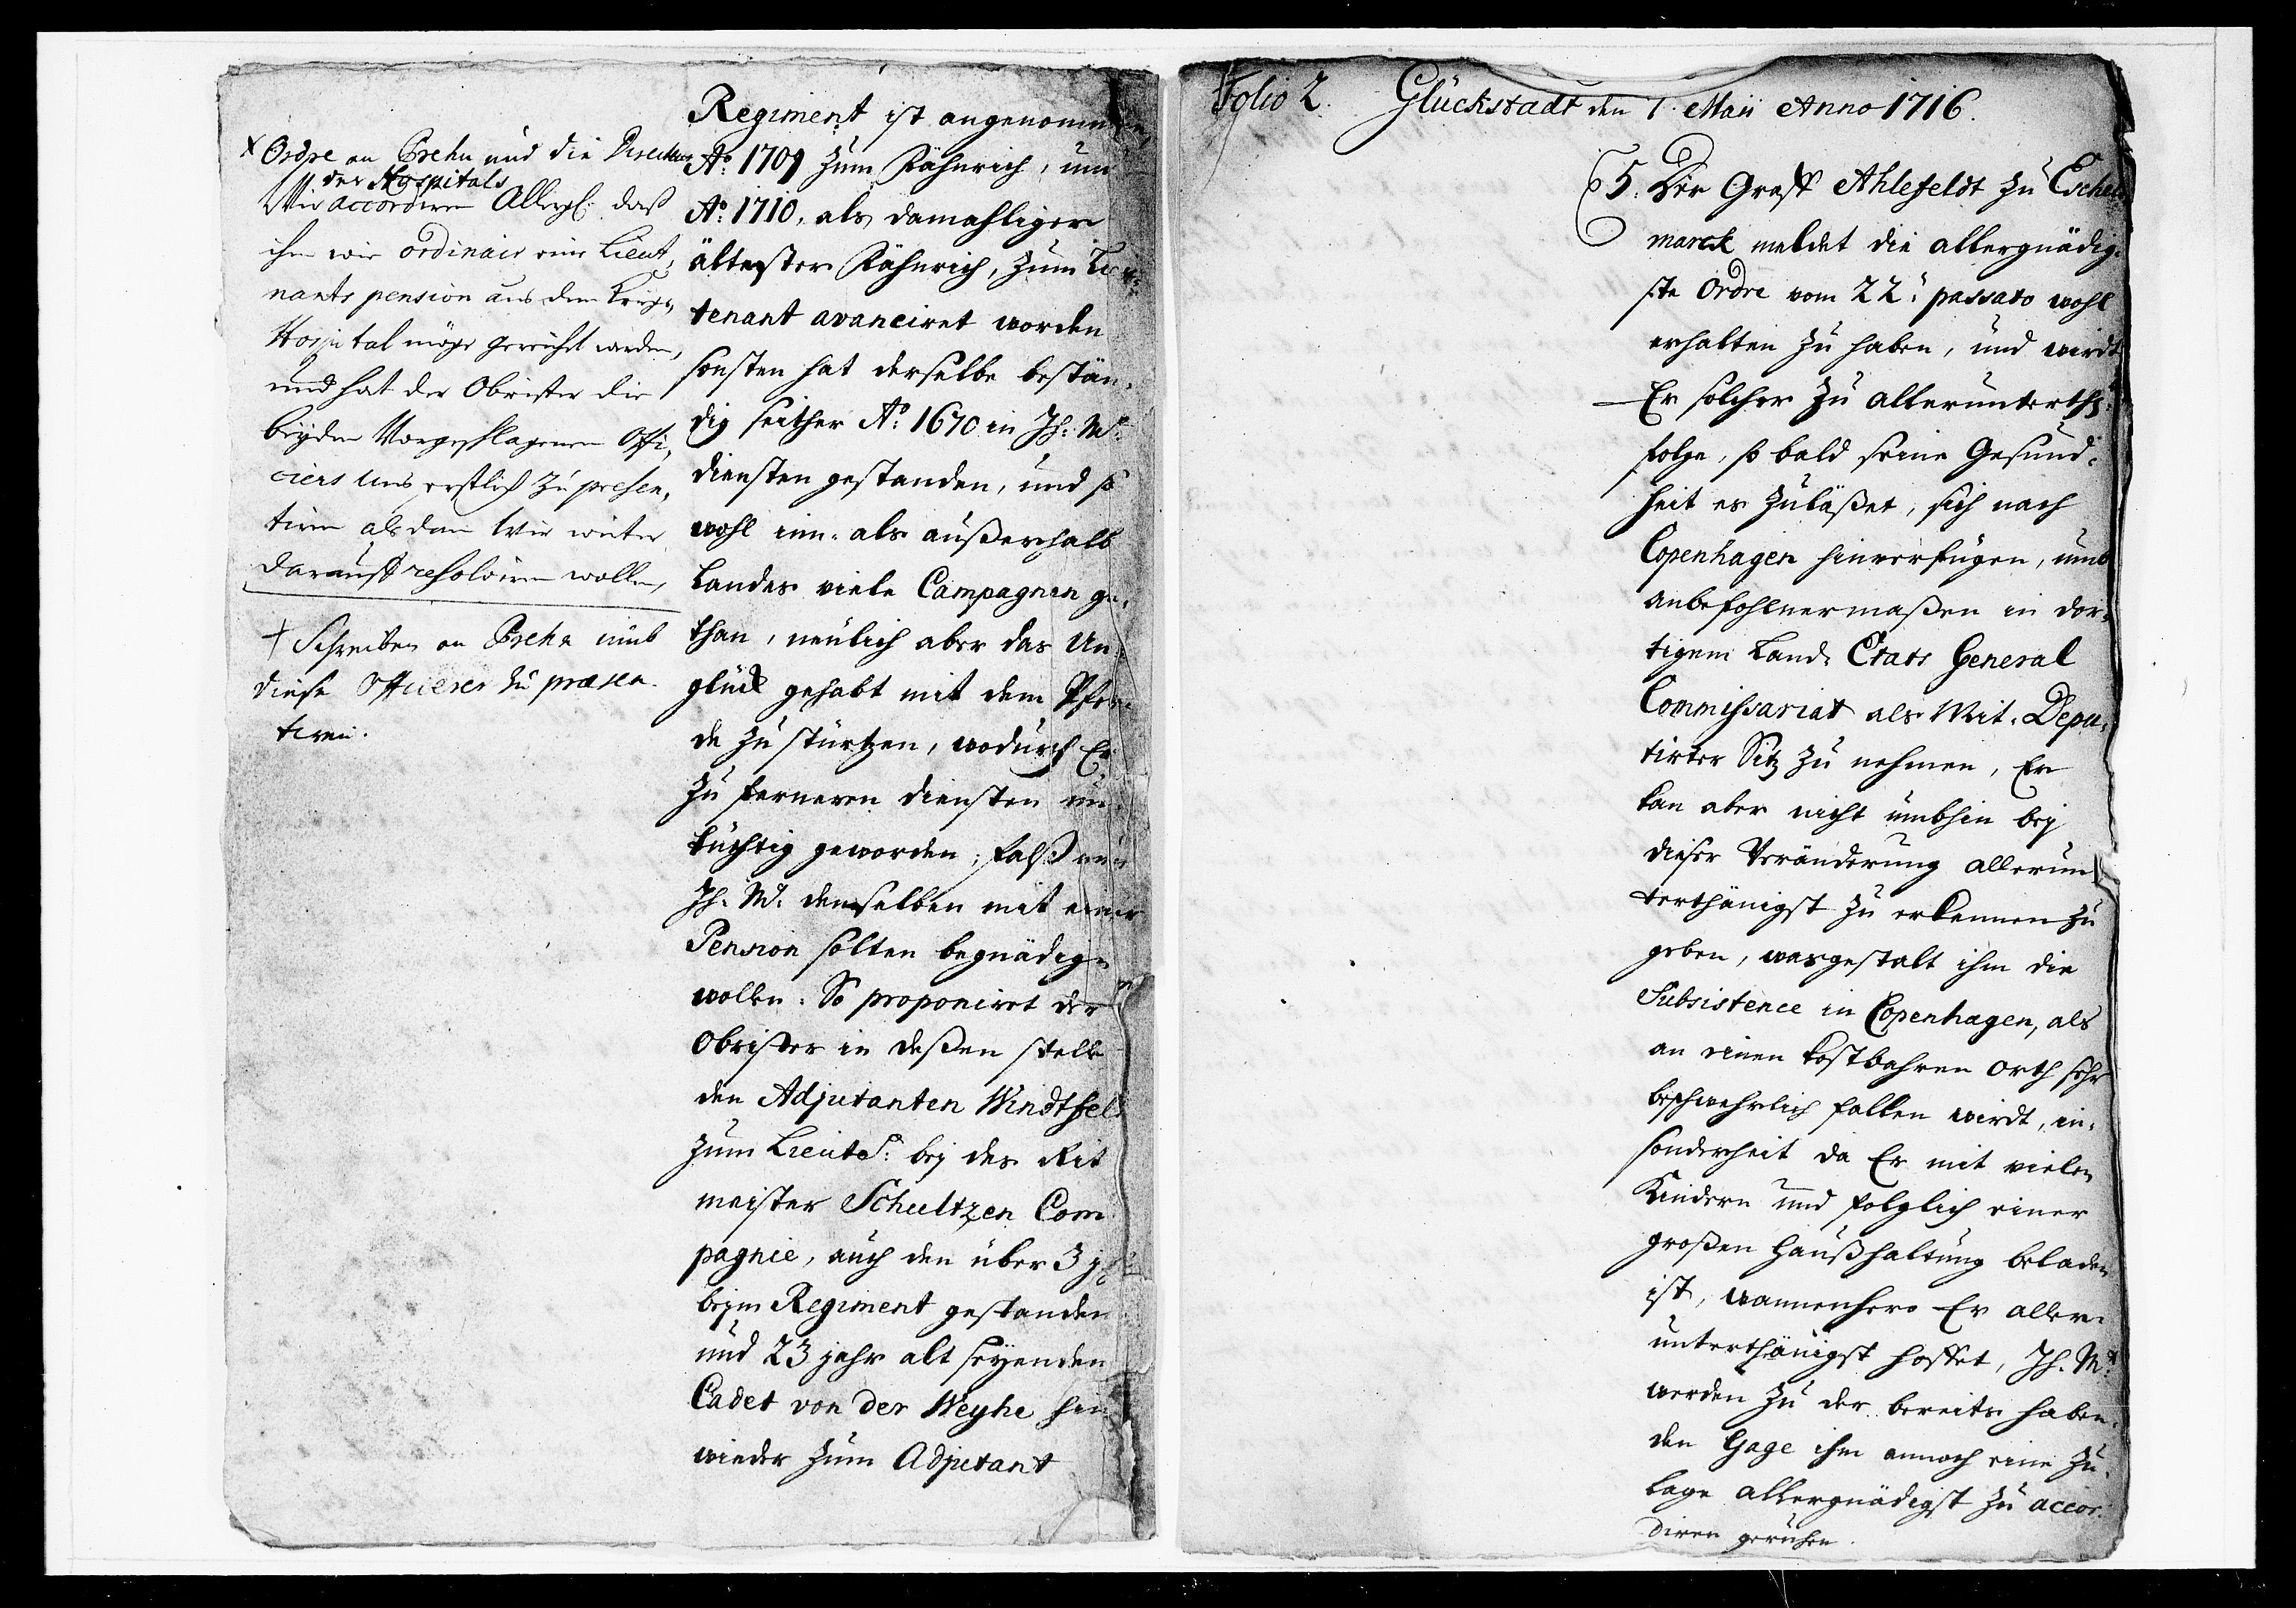 x Ordre an Prehn und die Direction
der Hospitals
Wir accordiren Allergl: daß
ihm wie ordinair eine Lieut,,
nants pension aus dem Krigs,,
Hospital möge gereicht werden,
und hat der Obrister die
beyden Vorgeschlagenen Offi,,
ciers Uns erstlich zu presen,,
tiren als dann Wir weiter
darauff resolviren wollen,
† Schreiben an Prehn umb
diese Officirer zu præsen
tiren.
Regiment ist angenommen,
Aō: 1709 zum Fähnrich, und
Aō: 1710, als damahliger
ältester Fähnrich, zum Lieu:
tenant avanciret worden
sonsten hat derselbe bestän,
dig seither Aō: 1670 in Ih: Mt:
diensten gestanden, und so
wohl inn- als außerhalb
Landes viele Campagnen ge,
than, neulich aber das Un,
glück gehabt mit dem Pfer,
de zu stürtzen, wodurch Er
zu ferneren diensten un,
tüchtig geworden; falß nun
Ih: Mt: demselben mit einer
Pension solten begnädigen
wollen: So proponiret der
Obrister in deßen stelle
den Adjutanten Windtfeld
zum Lieutñ: bey des Rit
meister Schultzen Com
pagnie, auch den über 3 jahr
beym Regiment gestanden
und 23 jahr alt seyenden
Cadet von der Weyhe hin
wieder zum Adjutant
Folio 2. Glückstadt den 1. Maii Anno 1716.
5. Der Graff Ahlefeldt zu Eschels
marck meldet die allergnädig,
ste Ordre vom 22: passato wohl
erhalten zu haben, und wirdt
Er solcher zu allerunterthg:
folge, so bald seine Gesund,
heit es zuläßet, sich nach
Copenhagen hinverfügen, umb
anbefohlnermaßen in dor,
tigem Land- Etats General
Commissariat als Mit-Depu,
tirter Sitz zu nehmen, Er
kan aber nicht umbhin bey
dieser Veränderung allerun
terthänigst zu erkennen zu
geben, wasgestalt ihm die
Subsistence in Copenhagen, als
an einen kostbahren orth sehr
beschwehrlich fallen wirdt, in,
sonderheit da Er mit vielen
Kindern und folglich einer
großen Haußhaltung beladen
ist, wannenhero Er aller,
unterthänigst hoffet, Ih: Mt:
werden zu der bereits haben,
den Gage ihm annoch eine Zu,
lage allergnädigst zu accor,
diren geruhen.